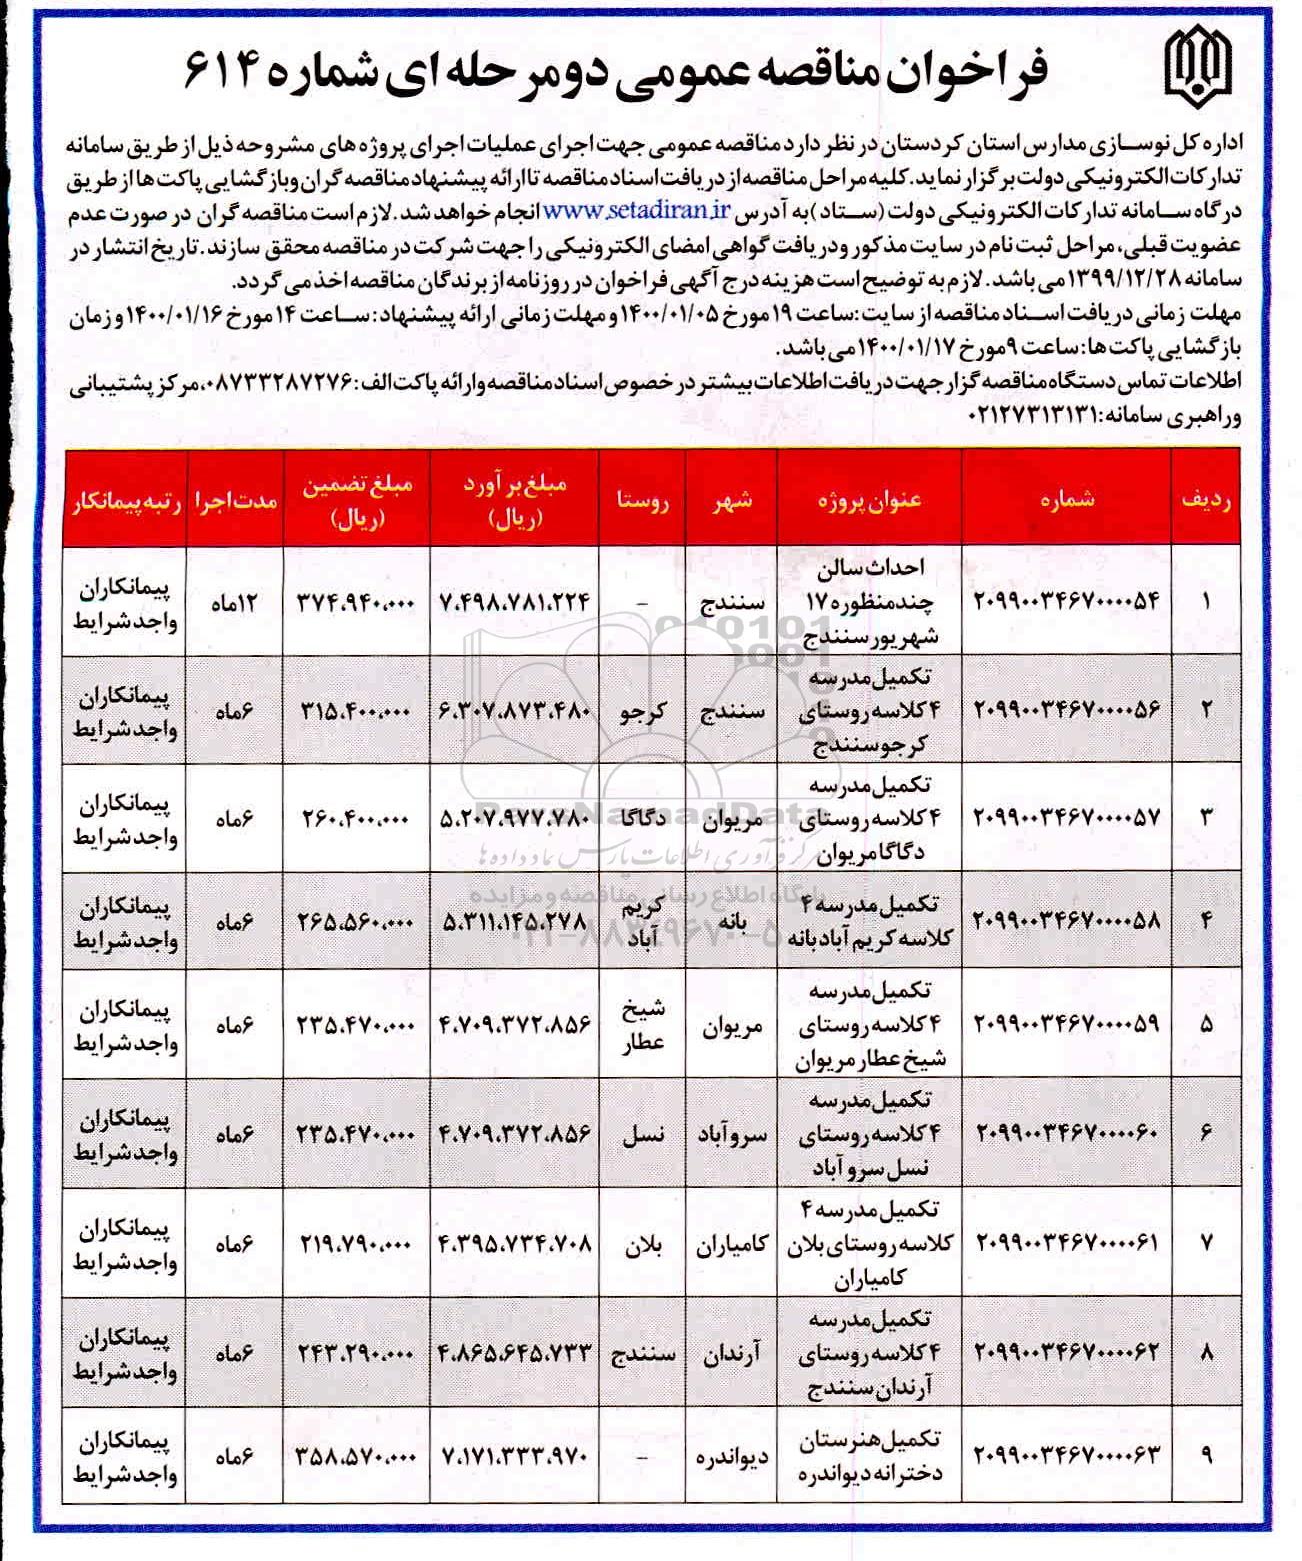 فراخوان مناقصه عمومی دومرحله ای شماره ۶۱۴
اداره کل نوسازی مدارس استان کردستان در نظر دارد مناقصه عمومی جهت اجرای عملیات اجرای پروژه های مشروحه ذیل از طریق سامانه
تدارکات الکترونیکی دولت برگزار نماید. کلیه مراحل مناقصه از دریافت اسناد مناقصه تا ارائه پیشنهاد مناقصه گران وبازگشایی پاکت ها از طریق
درگاه سامانه تدارکات الکترونیکی دولت (ستاد) به آدرس www.setadiran.ir انجام خواهد شد. لازم است مناقصه گران در صورت عدم
عضویت قبلی، مراحل ثبت نام در سایت مذکور ودریافت گواهی امضای الکترونیکی را جهت شرکت در مناقصه محقق سازند. تاریخ انتشار در
سامانه ۱۳۹۹/۱۲/۲۸ می باشد. لازم به توضیح است هزینه درج آگهی فراخوان در روزنامه از برندگان مناقصه اخذ می گردد.
مهلت زمانی دریافت اسناد مناقصه از سایت: ساعت ۱۹ مورخ ۱۴۰۰/۰۱/۰۵ و مهلت زمانی ارائه پیشنهاد: ساعت ۱۴ مورخ ۱۴۰۰/۰۱/۱۶ و زمان
بازگشایی پاکت ها: ساعت ۹ مورخ ۱۴۰۰/۰۱/۱۷ می باشد.
اطلاعات تماس دستگاه مناقصه گزار جهت دریافت اطلاعات بیشتر در خصوص اسناد مناقصه وارائه پاکت الف: ۰۸۷۳۳۲۸۷۲۷۶، مرکز پشتیبانی
وراهبری سامانه: ۰۲۱۲۷۳۱۳۱۳۱
ردیف شماره عنوان پروژه شهر روستا مبلغ برآورد (ریال) مبلغ تضمین (ریال) مدت اجرا رتبه پیمانکار
۱ ۲۰۹۹۰۰۳۴۶۷۰۰۰۰۵۴ احداث سالن چندمنظوره ۱۷ شهریور سنندج سنندج - ۷،۴۹۸،۷۸۱،۲۲۴ ۳۷۴،۹۴۰،۰۰۰ ۱۲ماه پیمانکاران واجد شرایط
۲ ۲۰۹۹۰۰۳۴۶۷۰۰۰۰۵۶ تکمیل مدرسه ۴ کلاسه روستای کرجو سنندج سنندج کرجو ۶،۳۰۷،۸۷۳،۴۸۰ ۳۱۵،۴۰۰،۰۰۰ ۶ماه پیمانکاران واجد شرایط
۳ ۲۰۹۹۰۰۳۴۶۷۰۰۰۰۵۷ تکمیل مدرسه ۴ کلاسه روستای دگاگا مریوان مریوان دگاگا ۵،۲۰۷،۹۷۷،۷۸۰ ۲۶۰،۴۰۰،۰۰۰ ۶ماه پیمانکاران واجد شرایط
۴ ۲۰۹۹۰۰۳۴۶۷۰۰۰۰۵۸ تکمیل مدرسه ۴ کلاسه کریم آباد بانه بانه کریم آباد ۵،۳۱۱،۱۴۵،۲۷۸ ۲۶۵،۵۶۰،۰۰۰ ۶ماه پیمانکاران واجد شرایط
۵ ۲۰۹۹۰۰۳۴۶۷۰۰۰۰۵۹ تکمیل مدرسه ۴ کلاسه روستای شیخ عطار مریوان مریوان شیخ عطار ۴،۷۰۹،۳۷۲،۸۵۶ ۲۳۵،۴۷۰،۰۰۰ ۶ماه پیمانکاران واجد شرایط
۶ ۲۰۹۹۰۰۳۴۶۷۰۰۰۰۶۰ تکمیل مدرسه ۴ کلاسه روستای نسل سروآباد سروآباد نسل ۴،۷۰۹،۳۷۲،۸۵۶ ۲۳۵،۴۷۰،۰۰۰ ۶ماه پیمانکاران واجد شرایط
۷ ۲۰۹۹۰۰۳۴۶۷۰۰۰۰۶۱ تکمیل مدرسه ۴ کلاسه روستای بلان کامیاران کامیاران بلان ۴،۳۹۵،۷۳۴،۷۰۸ ۲۱۹،۷۹۰،۰۰۰ ۶ماه پیمانکاران واجد شرایط
۸ ۲۰۹۹۰۰۳۴۶۷۰۰۰۰۶۲ تکمیل مدرسه ۴ کلاسه روستای آرندان سنندج آرندان سنندج ۴،۸۶۵،۶۴۵،۷۳۳ ۲۴۳،۲۹۰،۰۰۰ ۶ماه پیمانکاران واجد شرایط
۹ ۲۰۹۹۰۰۳۴۶۷۰۰۰۰۶۳ تکمیل هنرستان دخترانه دیواندره دیواندره - ۷،۱۷۱،۳۳۳،۹۷۰ ۳۵۸،۵۷۰،۰۰۰ ۶ماه پیمانکاران واجد شرایط
ParsNamadData
مرکز فرآوری اطلاعات پارس نماد داده ها
پایگاه اطلاع رسانی مناقصه و مزایده